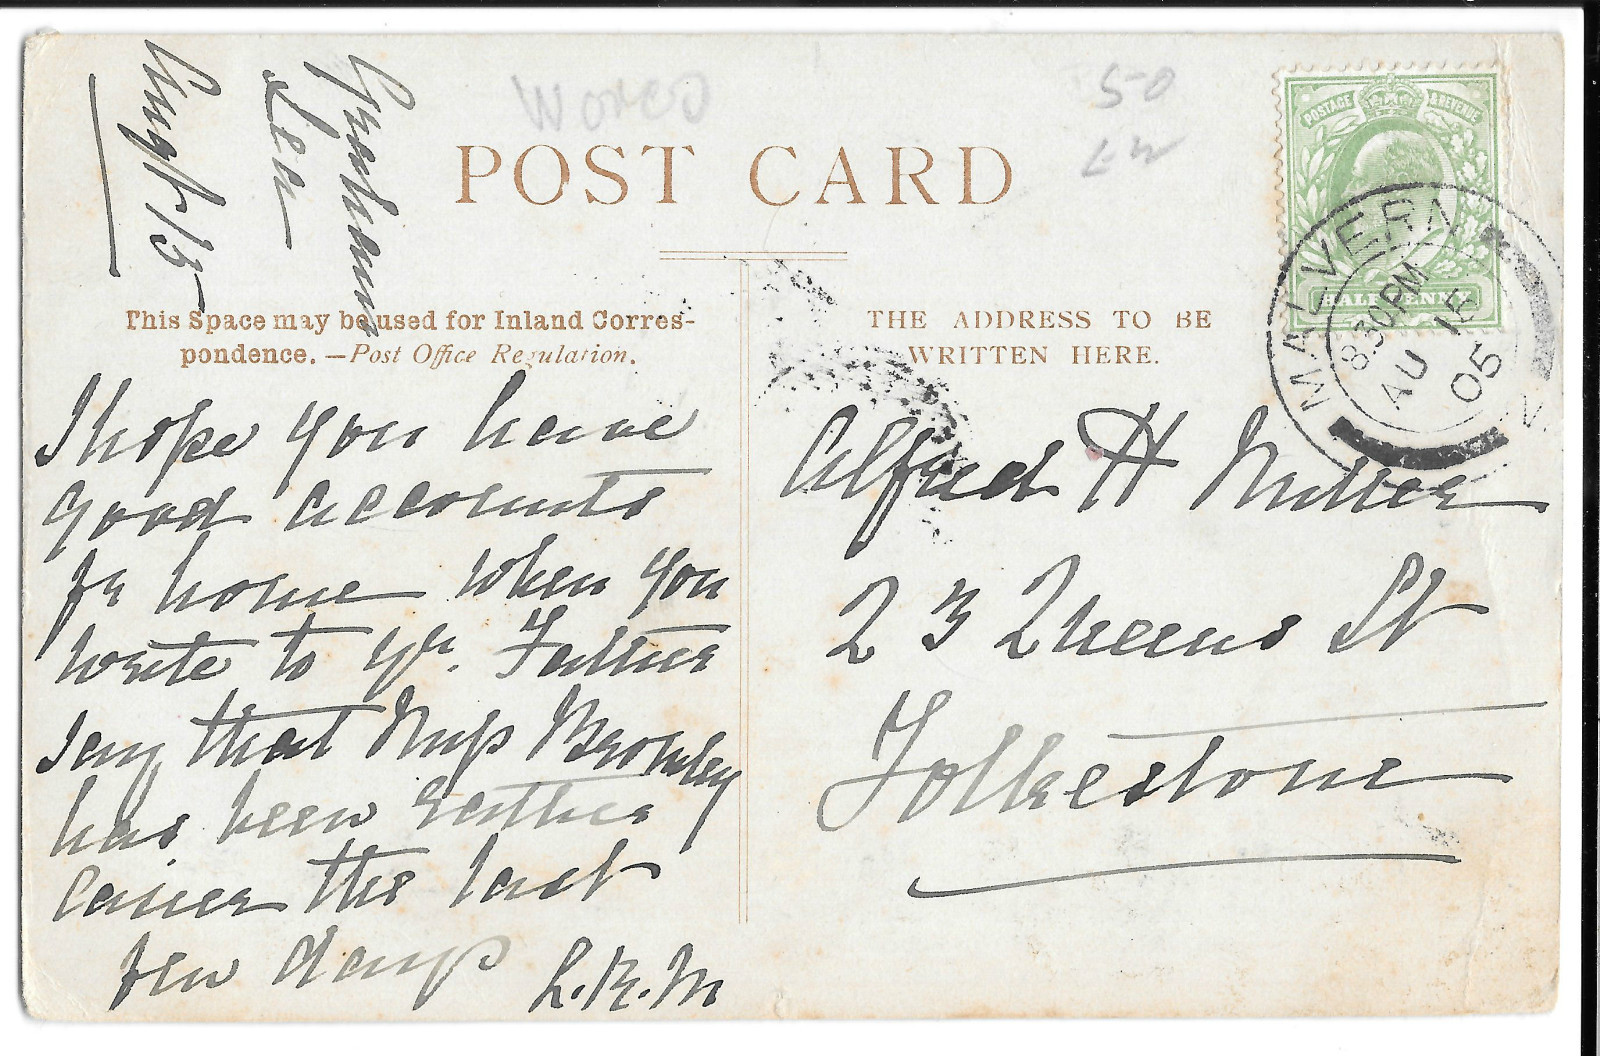 Worcs
50
POST CARD
Grahams
Lea
Augst/15
This Space may be used for Inland Corres-
pondence.—Post Office Regulation.
I hope you have
good accounts
fr home when you
write to yr. Father
say that Miss Bromley
has been rather
easier the last
few days L.R.M
THE ADDRESS TO BE
WRITTEN HERE.
Alfred H Miller
23 Queens St
Folkestone
POSTAGE & REVENUE
HALFPENNY
MALVERN
8.30PM
AU 15
05